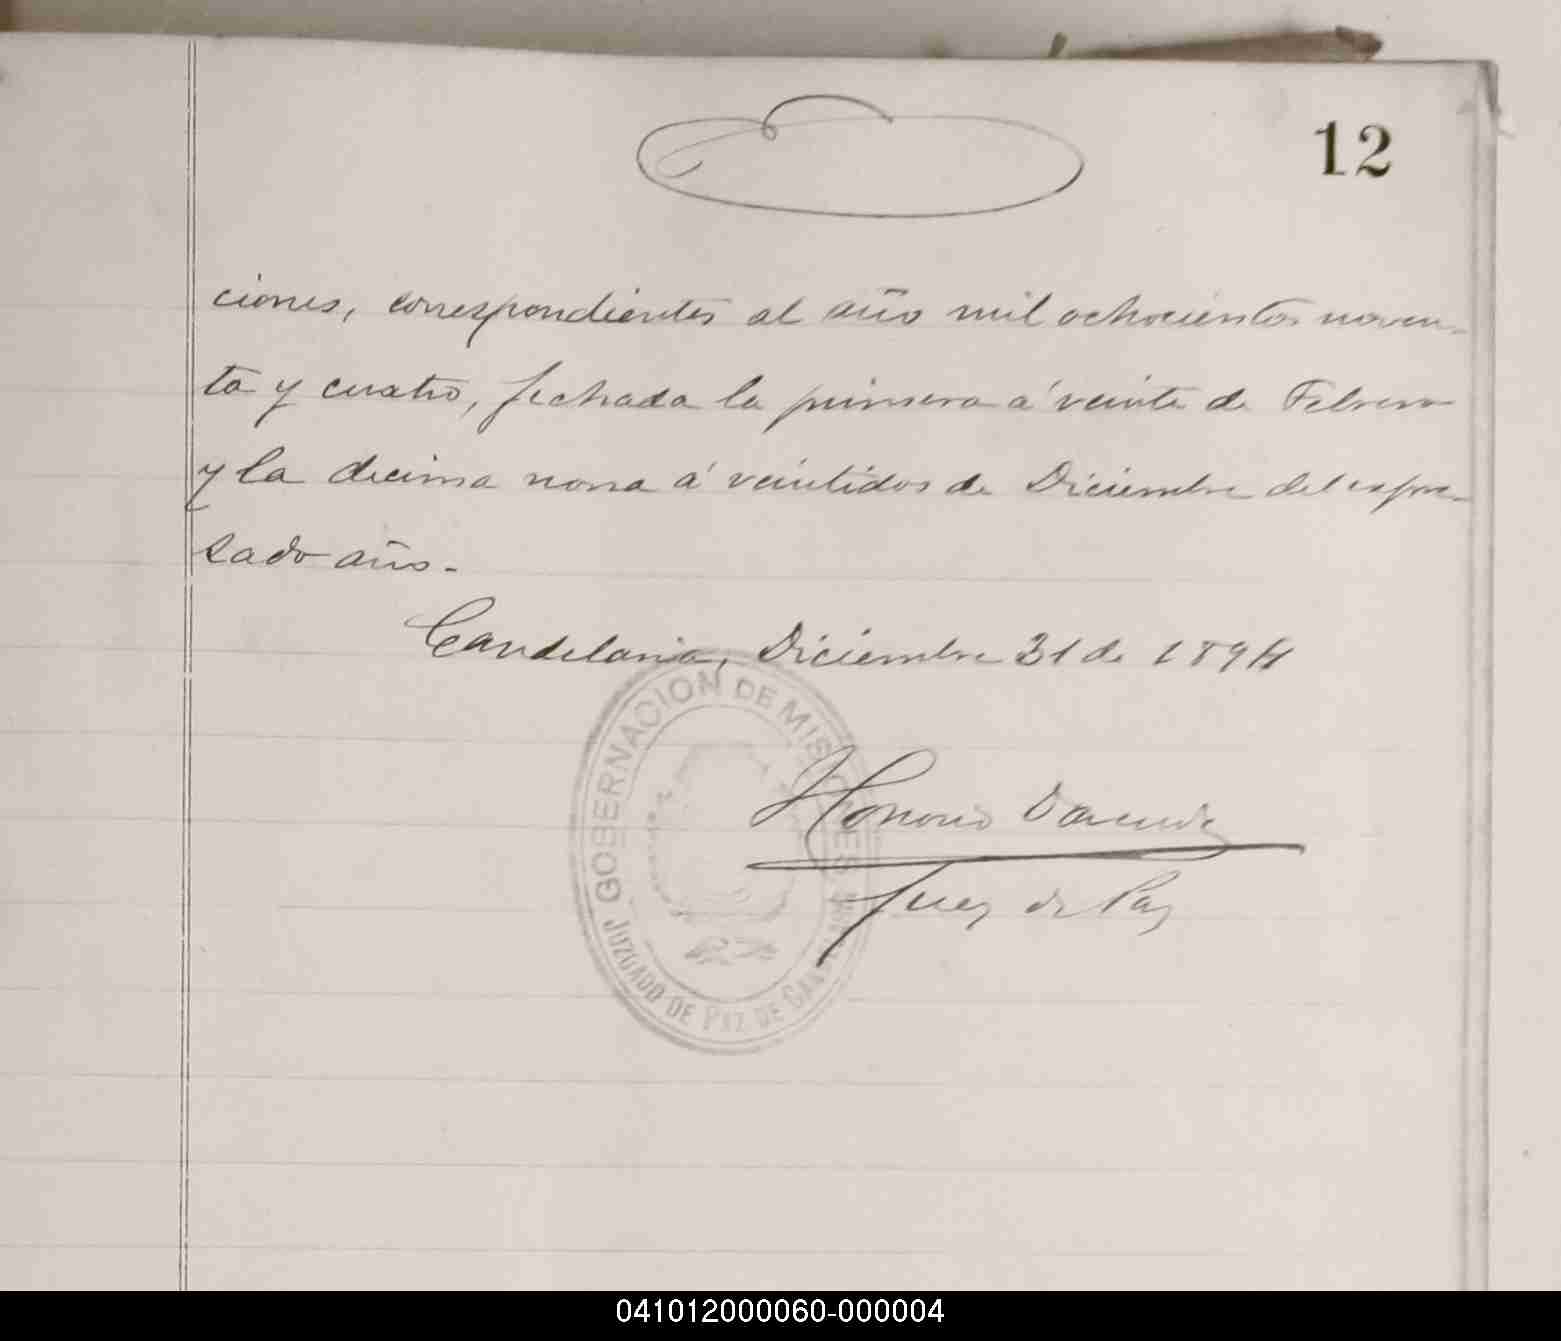 12
ciones, correspondientes al año mil ochocientos noven-
ta y cuatro, fechada la primera á veinte de Febrero
y la decima nona á veintidos de Diciembre del expre-
sado año.-
Candelaria, Diciembre 31 de 1894
GOBERNACION DE MISIONES
JUZGADO DE PAZ DE CANDELARIA
Honorio
Juez de Paz
041012000060-000004